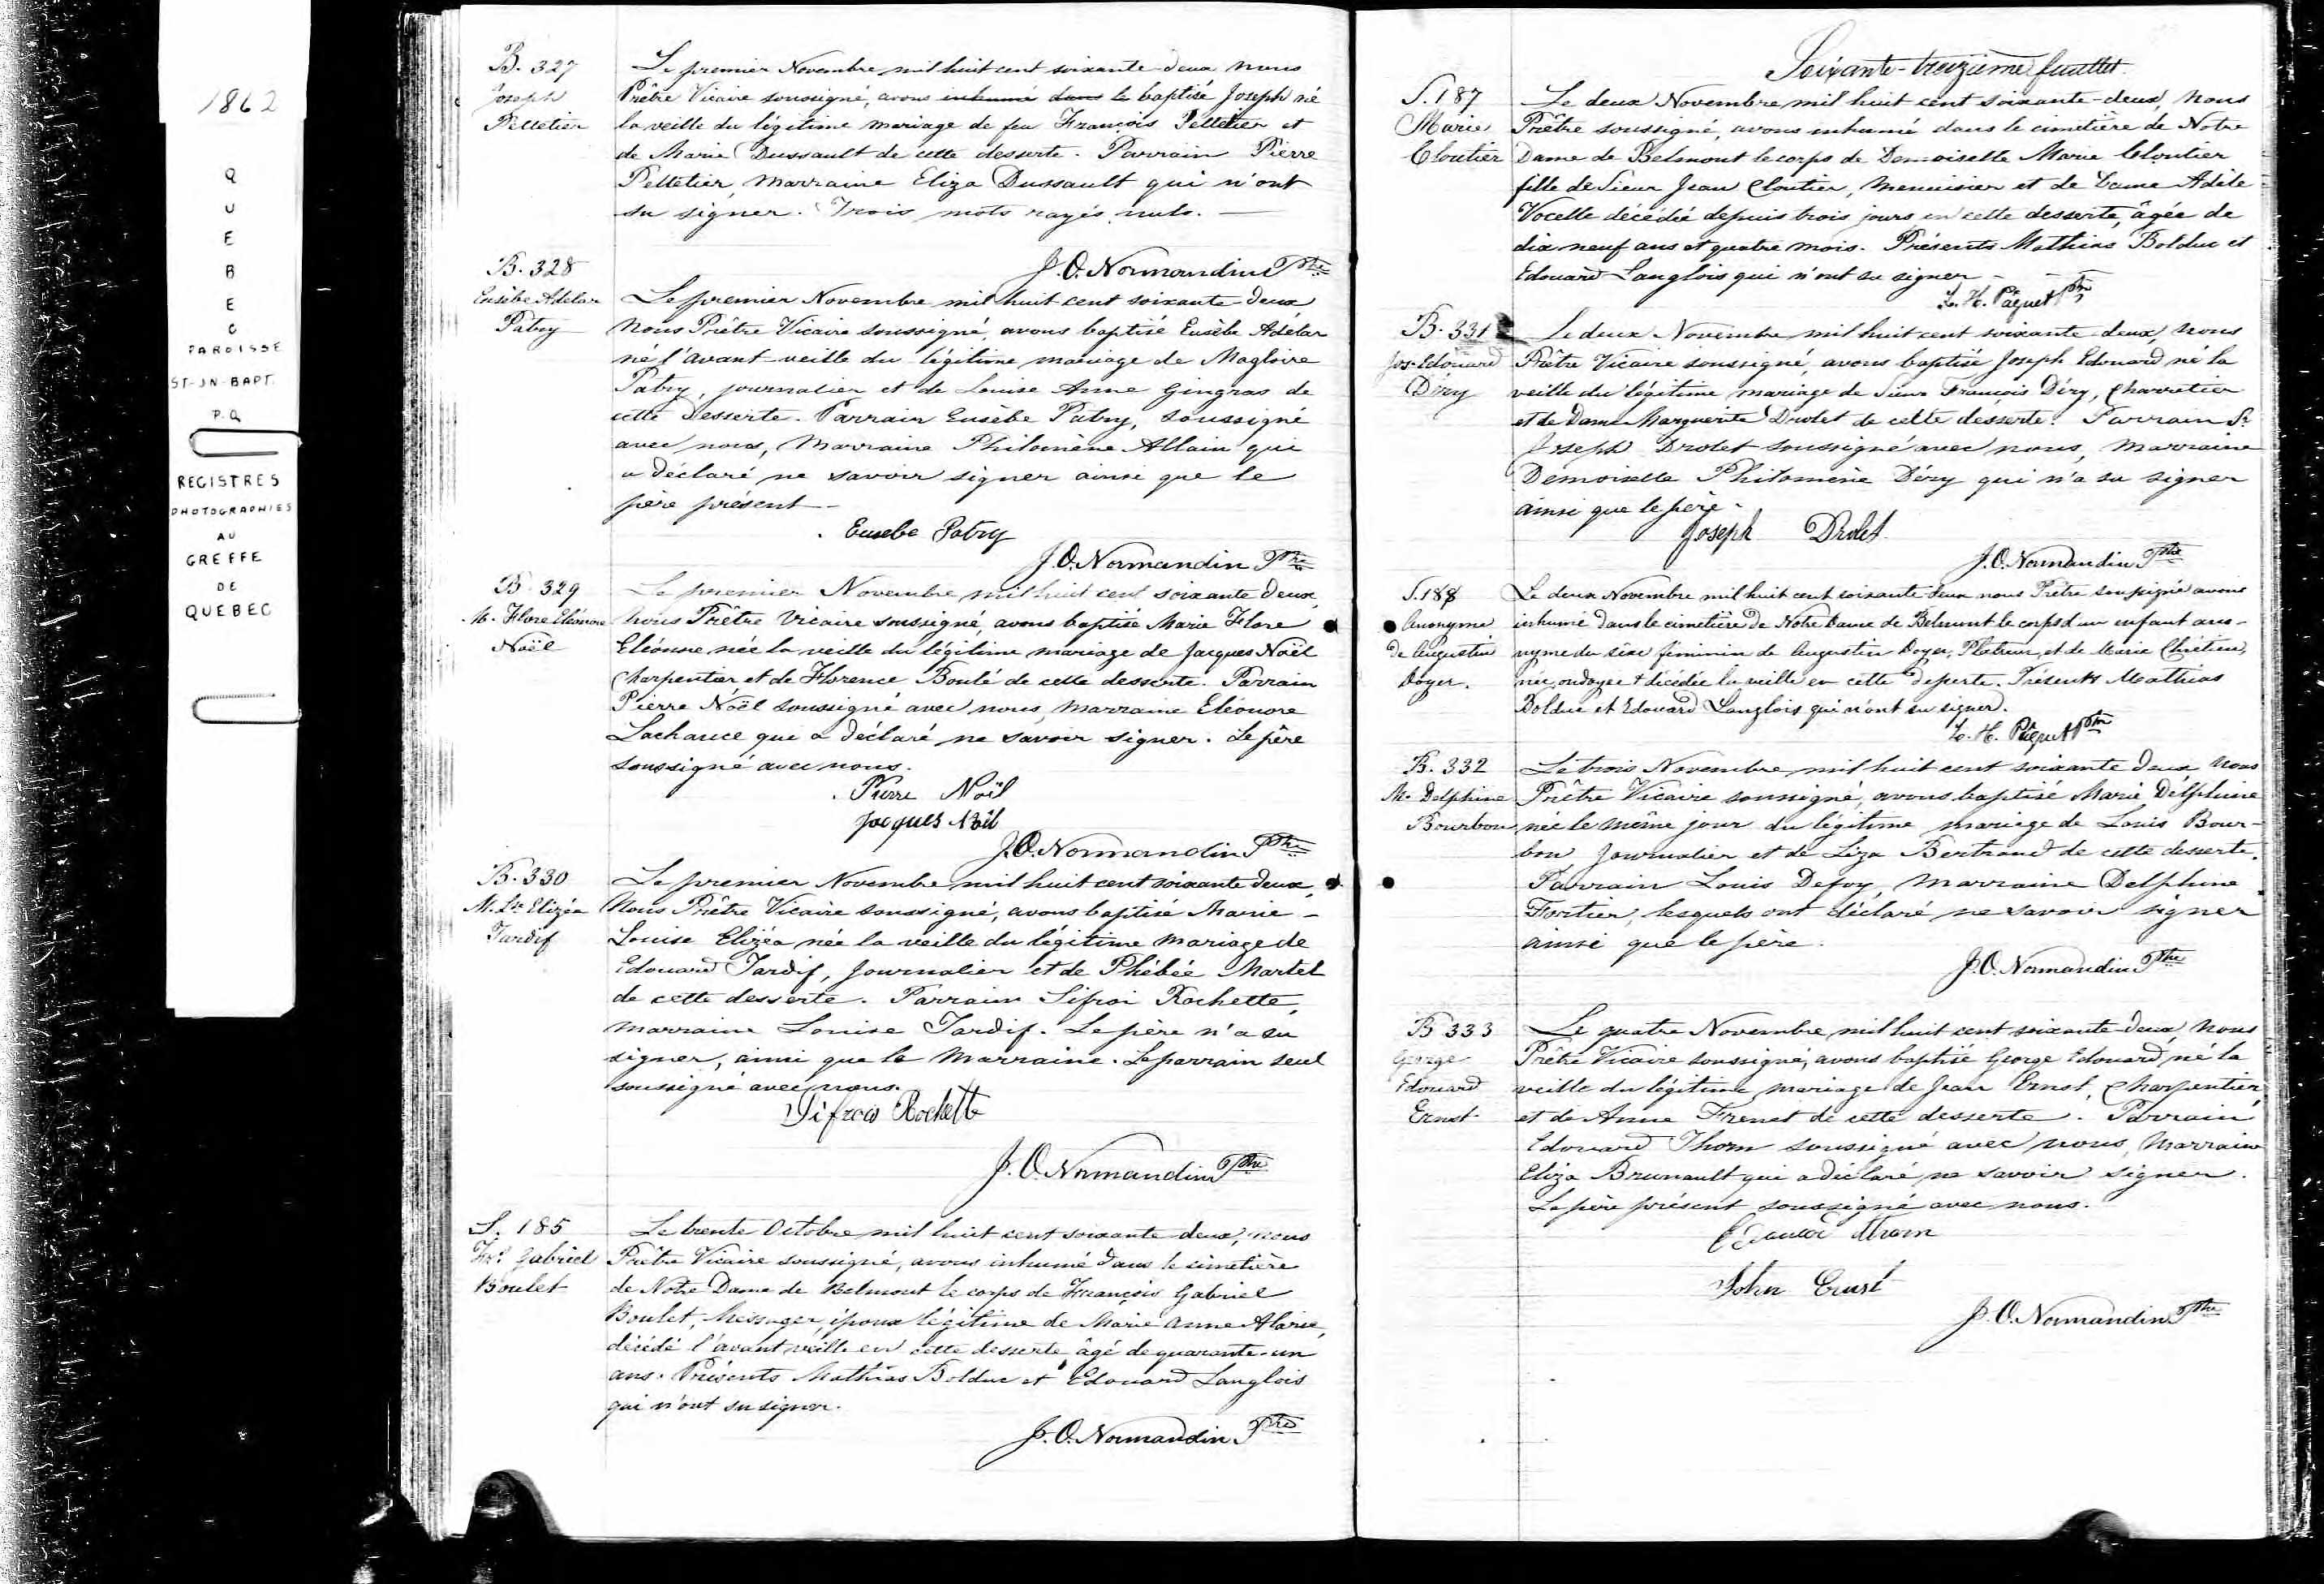 1862
QUEBEC
PAROISSE
ST-JN-BAPT.
P.Q
REGISTRES
PHOTOGRAPHIES
AU
GREFFE
DE
QUEBEC
B. 327
Joseph
Pelletier
Le premier Novembre mil huit cent soixante-deux nous
Prêtre Vicaire soussigné, avons inhumé dans le baptisé Joseph né
la veille du légitime mariage de feu François Pelletier et
de Marie Dussault de cette desserte. Parrain Pierre
Pelletier, Marraine Eliza Dussault qui n'ont
su signer. Trois mots rayés nuls. —
J.O. Normandin Ptre
B. 328
Eusèbe Adélar
Patry
Le premier Novembre mil huit cent soixante deux
Nous Prêtre Vicaire soussigné, avons baptisé Eusèbe Adélar
né l'avant-veille du légitime mariage de Magloire
Patry, journalier et de Louise Anne Gingras de
cette desserte. Parrain Eusèbe Patry, soussigné
avec nous, Marraine Philomène Allain qui
a déclaré ne savoir signer ainsi que le
père présent —
Eusebe Patry
J.O. Normandin Ptre
B. 329
M. Flore Eléonore
Noël
Le premier Novembre mil huit cent soixante deux,
nous Prêtre Vicaire soussigné, avons baptisé Marie Flore
Eléonore née la veille du légitime mariage de Jacques Noël
Charpentier et de Florence Boulé de cette desserte. Parrain
Pierre Noël soussigné avec nous, marraine Eléonore
Lachance qui a déclaré ne savoir signer. Le père
soussigné avec nous.
Pierre Noël
Jacques Noël
J.O. Normandin Ptre
B. 330
M. Lse Elizéa
Tardif
Le premier Novembre mil huit cent soixante deux,
Nous Prêtre Vicaire soussigné, avons baptisé Marie-
Louise Elizéa née la veille du légitime mariage de
Edouard Tardif, Journalier et de Phébée Martel
de cette desserte. Parrain Sifroi Rochette,
marraine Louise Tardif. Le père n'a su
signer, ainsi que la Marraine. Le parrain seul
soussigné avec nous.
Sifroid Rochette
J.O. Normandin Ptre
S. 185
Frs Gabriel
Boulet
Le trente Octobre mil huit cent soixante deux, nous
Prêtre Vicaire soussigné, avons inhumé dans le cimetière
de Notre Dame de Belmont le corps de François Gabriel
Boulet, Messager, époux légitime de Marie Anne Alarie,
décédé l'avant veille en cette desserte âgé de quarante-un
ans. Présents Mathias Bolduc et Edouard Langlois
qui n'ont su signer.
J.O. Normandin Ptre
Soixante-treizième feuillet
S. 187
Marie
Cloutier
Le deux Novembre mil huit cent soixante-deux, nous
Prêtre soussigné, avons inhumé dans le cimetière de Notre
Dame de Belmont le corps de Demoiselle Marie Cloutier
fille de Sieur Jean Cloutier, Menuisier et de Dame Adèle
Vocelle décédée depuis trois jours en cette desserte, âgée de
dix neuf ans et quatre mois. Présents Mathias Bolduc et
Edouard Langlois qui n'ont su signer —
L. H. Pâquet Ptre
B. 331
Jos-Edouard
Déry
Le deux Novembre mil huit cent soixante-deux, nous
Prêtre Vicaire soussigné, avons baptisé Joseph Edouard né la
veille du légitime mariage de Sieur François Déry, Charretier
et de Dame Marguerite Drolet de cette desserte. Parrain Sr
Joseph Drolet soussigné avec nous, marraine
Demoiselle Philomène Déry qui n'a su signer
ainsi que le père.
Joseph Drolet
J.O. Normandin Ptre
S. 188
Anonyme
de Augustin
Doyer.
Le deux Novembre mil huit cent soixante deux nous Prêtre soussigné avons
inhumé dans le cimetière de Notre Dame de Belmont le corps d'un enfant ano-
nyme du sexe féminin de Augustin Doyer, Plâtrier, et de Marie Chrétien,
née, ondoyée & décédée la veille en cette desserte. Présents Mathias
Bolduc et Edouard Langlois qui n'ont su signer.
L. H. Pâquet Ptre
B. 332
M. Delphine
Bourbon
Le trois Novembre mil huit cent soixante deux nous
Prêtre Vicaire soussigné, avons baptisé Marie Delphine
née le même jour du légitime mariage de Louis Bour-
bon, Journalier et de Liza Bertrand de cette desserte.
Parrain Louis Defoy, Marraine Delphine
Fortier, lesquels ont déclaré ne savoir signer
ainsi que le père.
J.O. Normandin Ptre
B 333
George
Edouard
Ernst
Le quatre Novembre mil huit cent soixante-deux, nous
Prêtre Vicaire soussigné, avons baptisé George Edouard, né la
veille du légitime mariage de Jean Ernst, Charpentier,
et de Anne Frenet de cette desserte. Parrain
Edouard Thom soussigné avec nous, Marraine
Eliza Brunault qui a déclaré ne savoir signer.
Le père présent soussigné avec nous.
Edouard Thom
John Ernst
J.O. Normandin Ptre